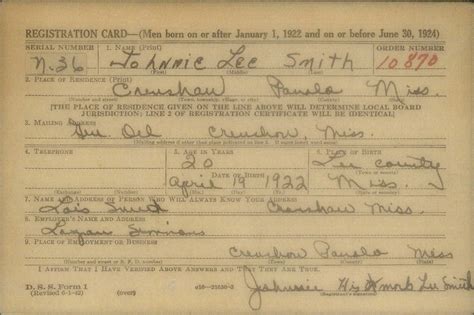 REGISTRATION CARD—(Men born on or after January 1, 1922 and on or before June 30, 1924)
SERIAL NUMBER 1. NAME (Print) ORDER NUMBER
N. 36 Johnnie Lee Smith 10870
(First) (Middle) (Last)
2. PLACE OF RESIDENCE (Print)
Crenshaw Panola Miss.
(Number and street) (Town, township, village, or city) (County) (State)
[THE PLACE OF RESIDENCE GIVEN ON THE LINE ABOVE WILL DETERMINE LOCAL BOARD
JURISDICTION; LINE 2 OF REGISTRATION CERTIFICATE WILL BE IDENTICAL]
3. MAILING ADDRESS
Gen. Del Crenshaw, Miss.
4. TELEPHONE 5. AGE IN YEARS 6. PLACE OF BIRTH
20 Lee County
DATE OF BIRTH
April 19 1922 Miss.
(Exchange) (Number) (Mo.) (Day) (Yr.) (State or country)
7. NAME AND ADDRESS OF PERSON WHO WILL ALWAYS KNOW YOUR ADDRESS
Lois Smith Crenshaw Miss.
8. EMPLOYER'S NAME AND ADDRESS
Simmons
9. PLACE OF EMPLOYMENT OR BUSINESS
Crenshaw Panola Miss
(Number and street or R. F. D. number) (Town) (County) (State)
I AFFIRM THAT I HAVE VERIFIED ABOVE ANSWERS AND THAT THEY ARE TRUE.
D. S. S. Form 1
(Revised 6-1-42) (over) Johnnie His X mark Lee Smith
(Registrant's signature)